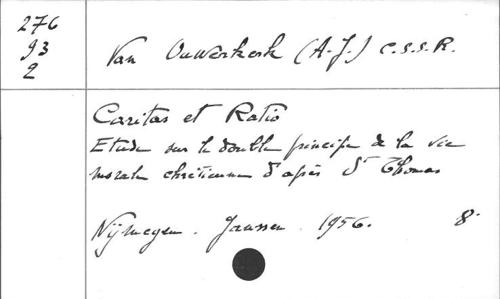 276
93
2
Van Ouwerkerk (A.-J.) C.S.S.R.
Caritas et Ratio
Etude sur le double principe de la vie
morale chrétienne d'après St Thomas
Nijmegen. Janssen. 1956. 8°